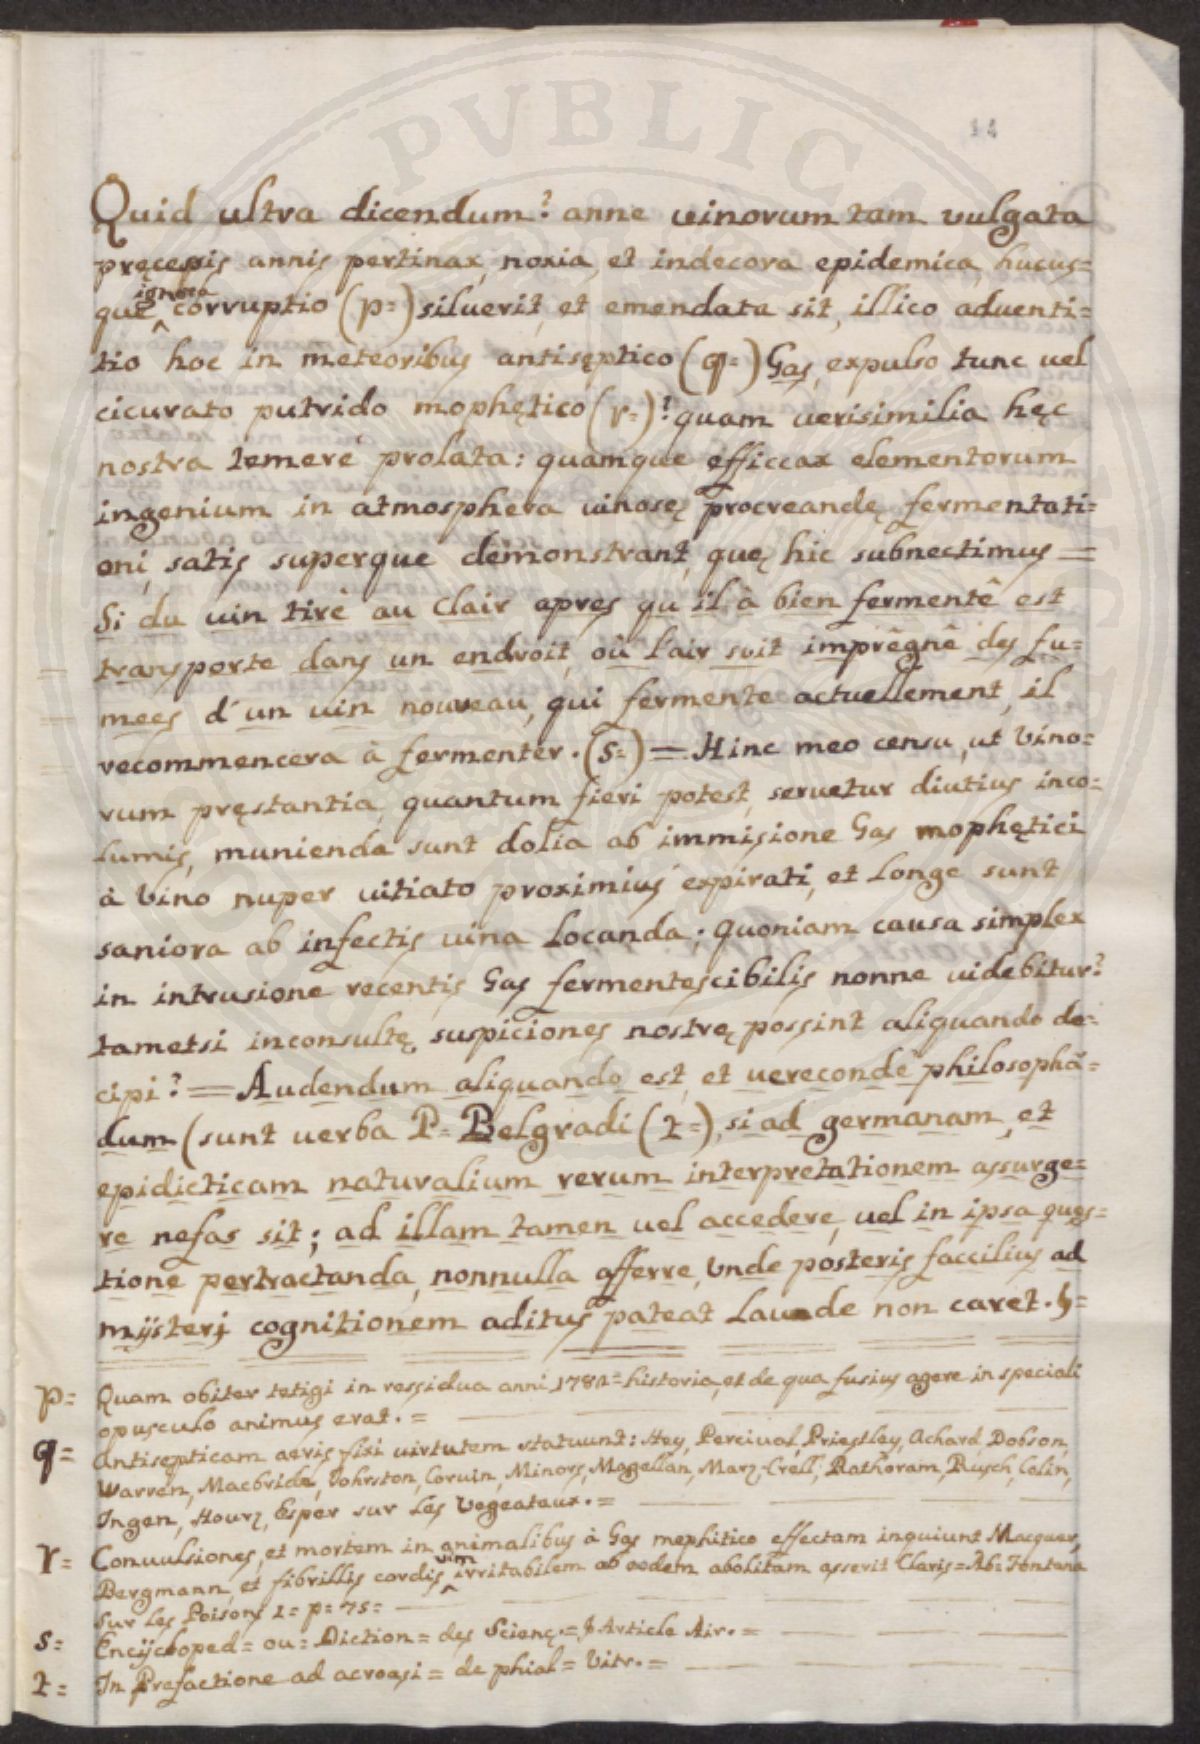 PVBLICA
14
Quid ultra dicendum? anne uinorum tam vulgata
pręcessis annis pertinax, noxia, et indecora epidemica, hucus=
ignota
que ^ corruptio (p=) siluerit, et emendata sit, illico aduenti=
tio hoc in meteoribus antisęptico (q=) Gas, expulso tunc uel
cicurato putrido mophętico (r=)? quam uerisimilia hęc
nostra temerè prolata: quamque efficcax elementorum
ingenium in atmosphera uinosę procreandę fermentati=
oni, satis superque demonstrant, quę hic subnectimus =
Si du uin tirè au clair apres qu il à bien fermentê est
transporte dans un endroit, oû l'air soit imprêgnê des fu=
mees d'un uin nouveau, qui fermente actuellement, il
recommencera à fermenter. (s=) = Hinc meo censu, ut Vino=
rum pręstantia, quantum fieri potest, seruetur diutius inco=
lumis, munienda sunt dolia ab immisione Gas mophętici
à Vino nuper uitiato proximius expirati, et longe sunt
saniora ab infectis uina locanda; quoniam causa simplex
in intrusione recentis Gas fermentescibilis nonne uidebitur?
tametsi inconsultę suspiciones nostrę possint aliquando de=
cipi? = Audendum aliquando est, et uerecondè philosophã=
dum (sunt uerba P= Belgradi (t=), si ad germanam, et
epidicticam naturalium rerum interpretationem assurge=
re nefas sit; ad illam tamen uel accedere, uel in ipsa quęs=
tione pertractanda, nonnulla afferre, Vnde posteris faccilius ad
mijsterj cognitionem aditus pateat Laude non caret. h=
p= Quam obiter tetigi in ressidua anni 1782= historia, et de qua fusius agere in speciali
opusculo animus erat. =
q= Antisepticam aeris fixi uirtutem statuunt: Hey, Perciual, Priestley, Achard, Dobson,
Warren, Macbride, Johrston, Coruin, Minors, Magellan, Marz, Crell, Rathoram, Rusch, Colin,
Ingen, Hourz, Esper sur les Vegeataux. =
r= Conuulsiones, et mortem in animalibus à Gas mephitico effectam inquiunt Macquer,
vim
Bergmann, et fibrillis cordis ^ irritabilem ab eodem abolitam asserit Claris= Ab= Fontana
Sur les Poisons 1= p= 75=
s= Encijcloped= ou= Diction= des Scienç.= Article Air. =
t= In Prefactione ad acroasi= de phial= Vitr. =